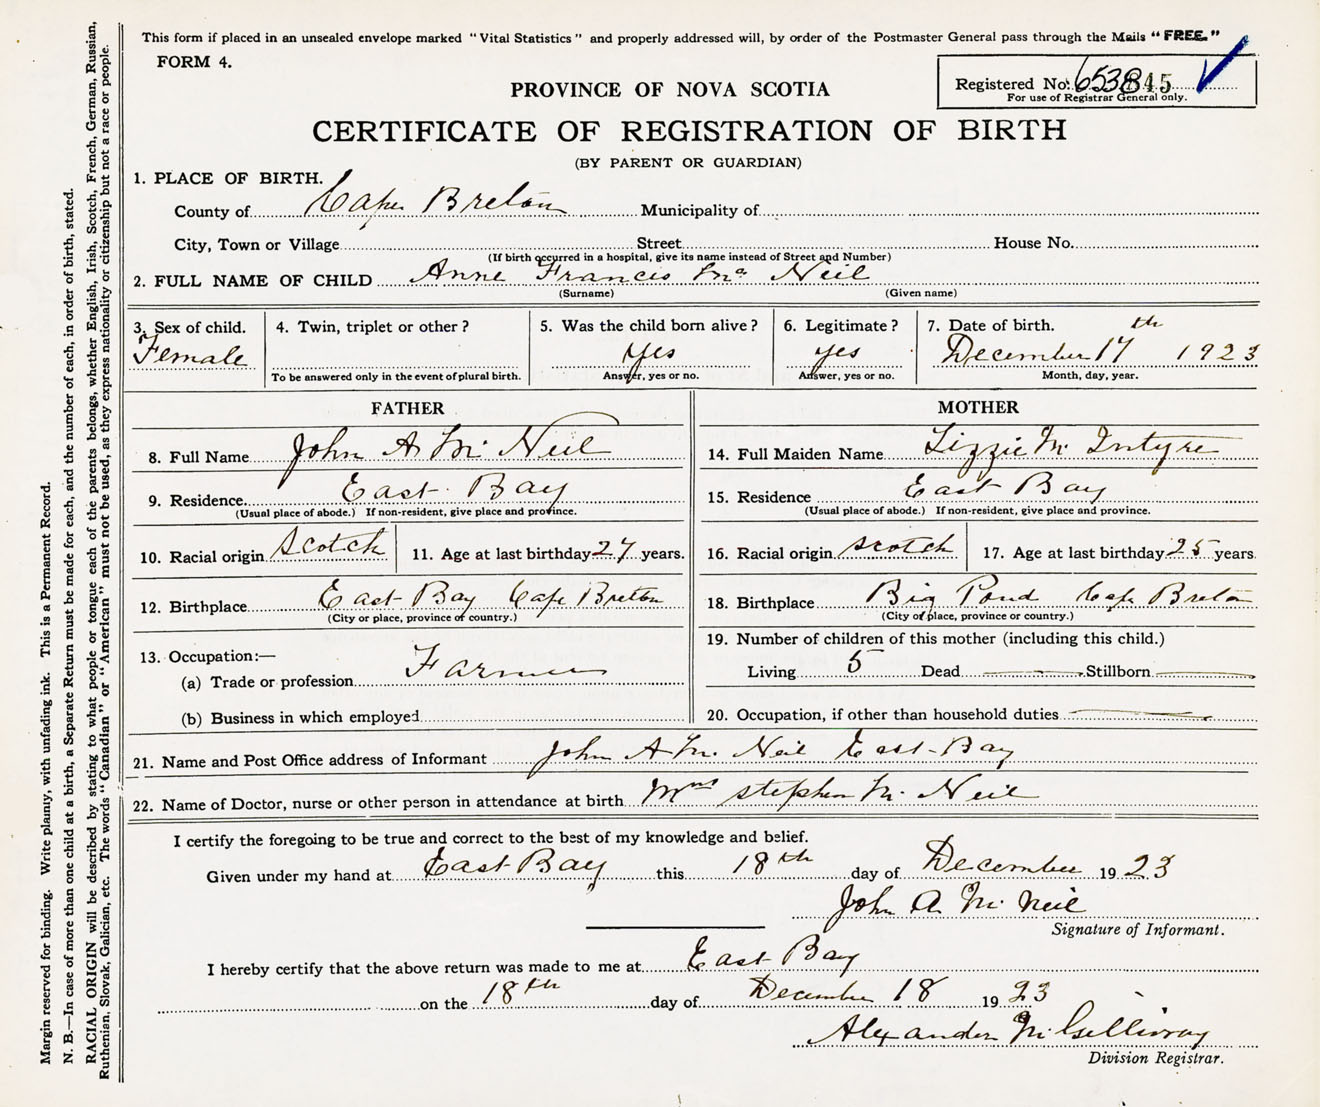 This form if placed in an unsealed envelope marked "Vital Statistics" and properly addressed will, by order of the Postmaster General pass through the Mails "FREE."
FORM 4.
Registered No.
For use of Registrar General only.
PROVINCE OF NOVA SCOTIA
CERTIFICATE OF REGISTRATION OF BIRTH
(BY PARENT OR GUARDIAN)
1. PLACE OF BIRTH.
County of Cape Breton Municipality of
City, Town or Village Street House No.
(If birth occurred in a hospital, give its name instead of Street and Number)
2. FULL NAME OF CHILD Anne Francis Mc Neil
(Surname) (Given name)
3. Sex of child. 4. Twin, triplet or other? 5. Was the child born alive? 6. Legitimate? 7. Date of birth.
Female Yes yes December 17th 1923
To be answered only in the event of plural birth. Answer, yes or no. Answer, yes or no. Month, day, year.
FATHER
8. Full Name John A Mc Neil
9. Residence East Bay
(Usual place of abode.) If non-resident, give place and province.
10. Racial origin Scotch 11. Age at last birthday 27 years.
12. Birthplace East Bay Cape Breton
(City or place, province or country.)
13. Occupation:—
(a) Trade or profession Farmer
(b) Business in which employed
MOTHER
14. Full Maiden Name Lizzie Mc Intyre
15. Residence East Bay
(Usual place of abode.) If non-resident, give place and province.
16. Racial origin scotch 17. Age at last birthday 25 years
18. Birthplace Big Pond Cape Breton
(City or place, province or country.)
19. Number of children of this mother (including this child.)
Living 5 Dead Stillborn
20. Occupation, if other than household duties
21. Name and Post Office address of Informant John A Mc Neil East-Bay
22. Name of Doctor, nurse or other person in attendance at birth Mrs stephen Mc Neil
I certify the foregoing to be true and correct to the best of my knowledge and belief.
Given under my hand at East Bay this 18th day of December 1923
John A. Mc Neil
Signature of Informant.
I hereby certify that the above return was made to me at East Bay
on the 18th day of December 18 1923
Alexander Mc Gillivray
Division Registrar.
Margin reserved for binding. Write plainly, with unfading ink. This is a Permanent Record.
N. B.—In case of more than one child at a birth, a Separate Return must be made for each, and the number of each, in order of birth, stated.
RACIAL ORIGIN will be described by stating to what people or tongue each of the parents belongs, whether English, Irish, Scotch, French, German, Russian,
Ruthenian, Slovak, Galician, etc. The words "Canadian" or "American" must not be used, as they express nationality or citizenship but not a race or people.